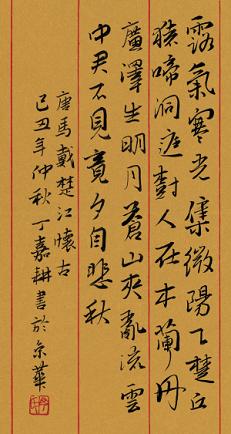 露氣寒光集微陽下楚丘
猿啼洞庭對人在木蘭舟
廣澤生明月蒼山夾亂流雲
中君不見竟夕自悲秋
唐馬戴楚江懷古
己丑年仲秋丁嘉耕書於京華